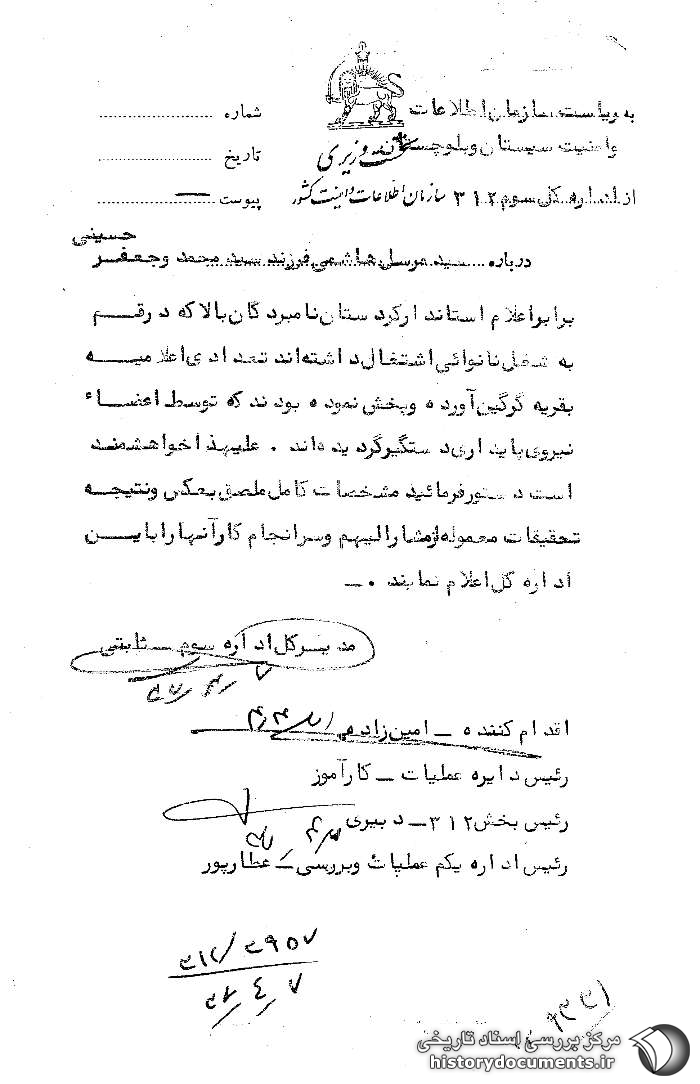 به ریاست سازمان اطلاعات
وامنیت سیستان وبلوچستان
نخست وزیری
از اداره کل سوم ۳۱۲
سازمان اطلاعات وامنیت کشور
شماره
تاریخ
پیوست —
درباره سید مرسل هاشمی فرزند سید محمد وجعفر حسینی
برابراعلام استاندارکردستان نامبردگان بالاکه درقم
به شغل نانوائی اشتغال داشته اند تعدادی اعلامیه
بقریه گرگین آورده وپخش نموده بودند که توسط اعضاء
نیروی پایداری دستگیرگردیده اند . علیهذا خواهشمند
است دستورفرمائید مشخصات کامل ملصق بعکس ونتیجه
تحقیقات معموله ازمشارالیهم وسرانجام کارآنهارابایین
اداره کل اعلام نمایند . —
مدیرکل اداره سوم — ثابتی
اقدام کننده — امین زاده
رئیس دایره عملیات — کارآموز
رئیس بخش ۳۱۲ — دبیری
رئیس اداره یکم عملیات وبررسی — عطارپور
۳۱۲/۳۹۵۷
مرکز بررسی اسناد تاریخی
historydocuments.ir